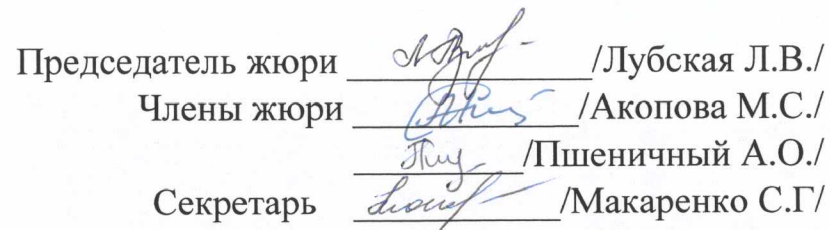 Председатель жюри ____________/Лубская Л.В./
Члены жюри ____________/Акопова М.С./
____________/Пшеничный А.О./
Секретарь ____________/Макаренко С.Г/